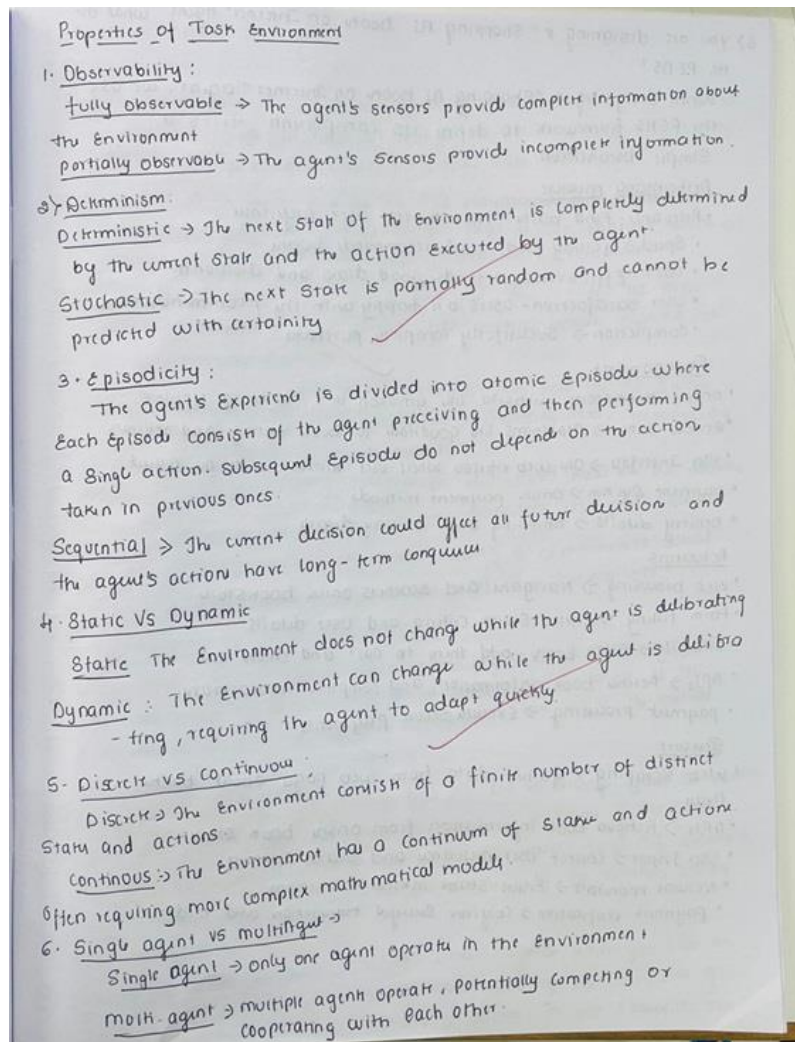 Properties of Task Environment
1. Observability :
fully observable → The agent's sensors provide complete information about
the Environment
partially observable → The agent's sensors provide incomplete information.
2) Determinism:
Deterministic → The next state of the Environment is completely determined
by the current state and the action executed by the agent.
Stochastic → The next state is partially random and cannot be
predicted with certainity
3. Episodicity :
The agent's Experience is divided into atomic Episode where
Each Episode consists of the agent preceiving and then performing
a single action. subsequent Episode do not depend on the action
taken in previous ones.
Sequential → The current decision could affect all future decision and
the agent's action have long-term
4. Static Vs Dynamic
Static The Environment does not change while the agent is delibrating
Dynamic : The Environment can change while the agent is delibra
- ting, requiring the agent to adapt quickly.
5- Discrete vs continuous :
Discrete → The Environment consists of a finite number of distinct
States and actions
Continous :→ The Environment has a continuum of states and actions
Often requiring more complex mathematical models.
6. Single agent vs multiagent →
Single agent → only one agent operates in the Environment
multi-agent → multiple agents operate, potentially competing or
cooperating with each other.